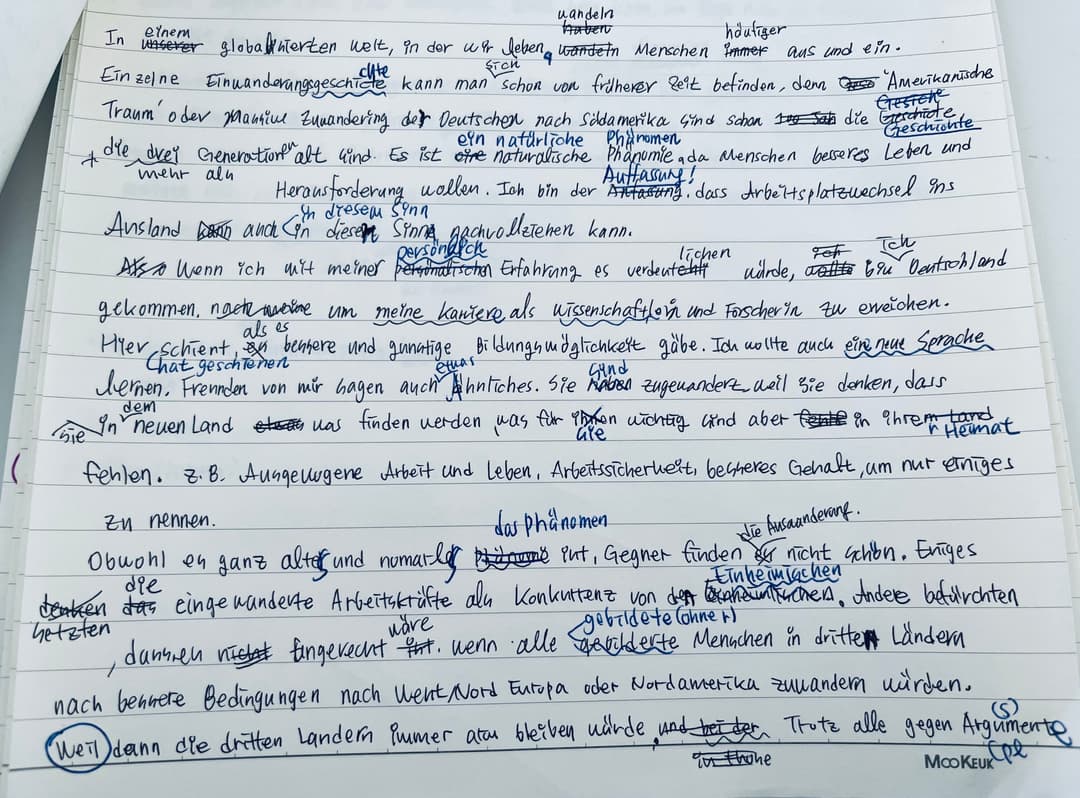 wandeln
In einem unserer globalisierten welt, in der wir leben, haben wandeln Menschen häufiger immer aus und ein.
Einzelne Einwanderungsgeschicte chte kann man sich schon von früherer Zeit befinden, denn "Amerikanische
Traum" oder Massive Zuwandering der Deutschen nach Südamerika sind schon die Geschichte Geschichte
* die drei mehr als Generationen alt sind. Es ist eine ein natürliche naturalische Phänomen Phänomie, da Menschen besseres Leben und
Herausforderung wollen. Ich bin der Auffassung! dass Arbeitsplatzwechsel ins
Ausland kann auch in diesem Sinn in diesem Sinne nachvollziehen kann.
Also Wenn ich mit meiner persönlich personalischen Erfahrung es verdeutlichen würde, Ich wollte bin Deutschland
gekommen, um meine karriere als Wissenschaftlerin und Forscherin zu erreichen.
Hier schient, (hat geschienen als es bessere und gunstige Bildungsmöglichkeit gäbe. Ich wollte auch eine neue Sprache
lernen. Freunden von mir sagen auch etwas Ähnliches. Sie haben sind zugewandert weil sie denken, dass
sie in dem neuen Land etwas was finden werden was für ihnen sie wichtig sind aber in ihrem Land r Heimat
fehlen. z.B. Ausgewogene Arbeit und Leben, Arbeitssicherheit, besseres Gehalt, um nur einiges
zu nennen.
Obwohl es ganz altes und normales das Phänomen ist, Gegner finden die Auswanderung nicht schön. Einiges
denken hetzten das die eingewanderte Arbeitskräfte als Konkurrenz von den Einheimischen. Andere befürchten
, dassen nicht Engerecht ist wäre. wenn alle gebildete (ohne r) gebilderte Menschen in dritten Ländern
nach bessere Bedingungen nach West/Nord Europa oder Nordamerika zuwandern würden.
Weil dann die dritten Landern immer arm bleiben würde, und bei der Trotz alle gegen Argumente (s)
(pl
MOOKEUK